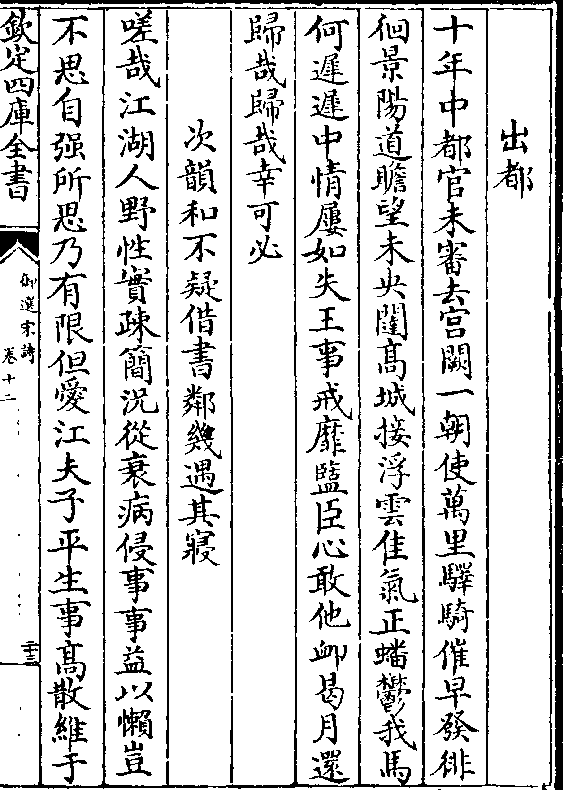 出都
十年中都官未審去宫闕一朝使萬里驛騎催早發徘
徊景陽道瞻望未央闥髙城接浮雲佳氣正蟠鬱我馬
何遲遲中情屢如失王事戒靡盬臣心敢他䘏曷月還
歸哉歸哉幸可必
次韻和不疑借書鄰幾遇其寢
嗟哉江湖人野性實疎簡況從衰病侵事事益以懶豈
不思自强所思乃有限但愛江夫子平生事髙散維于
欽定四庫全書
御選宋詩
卷十二
二十三